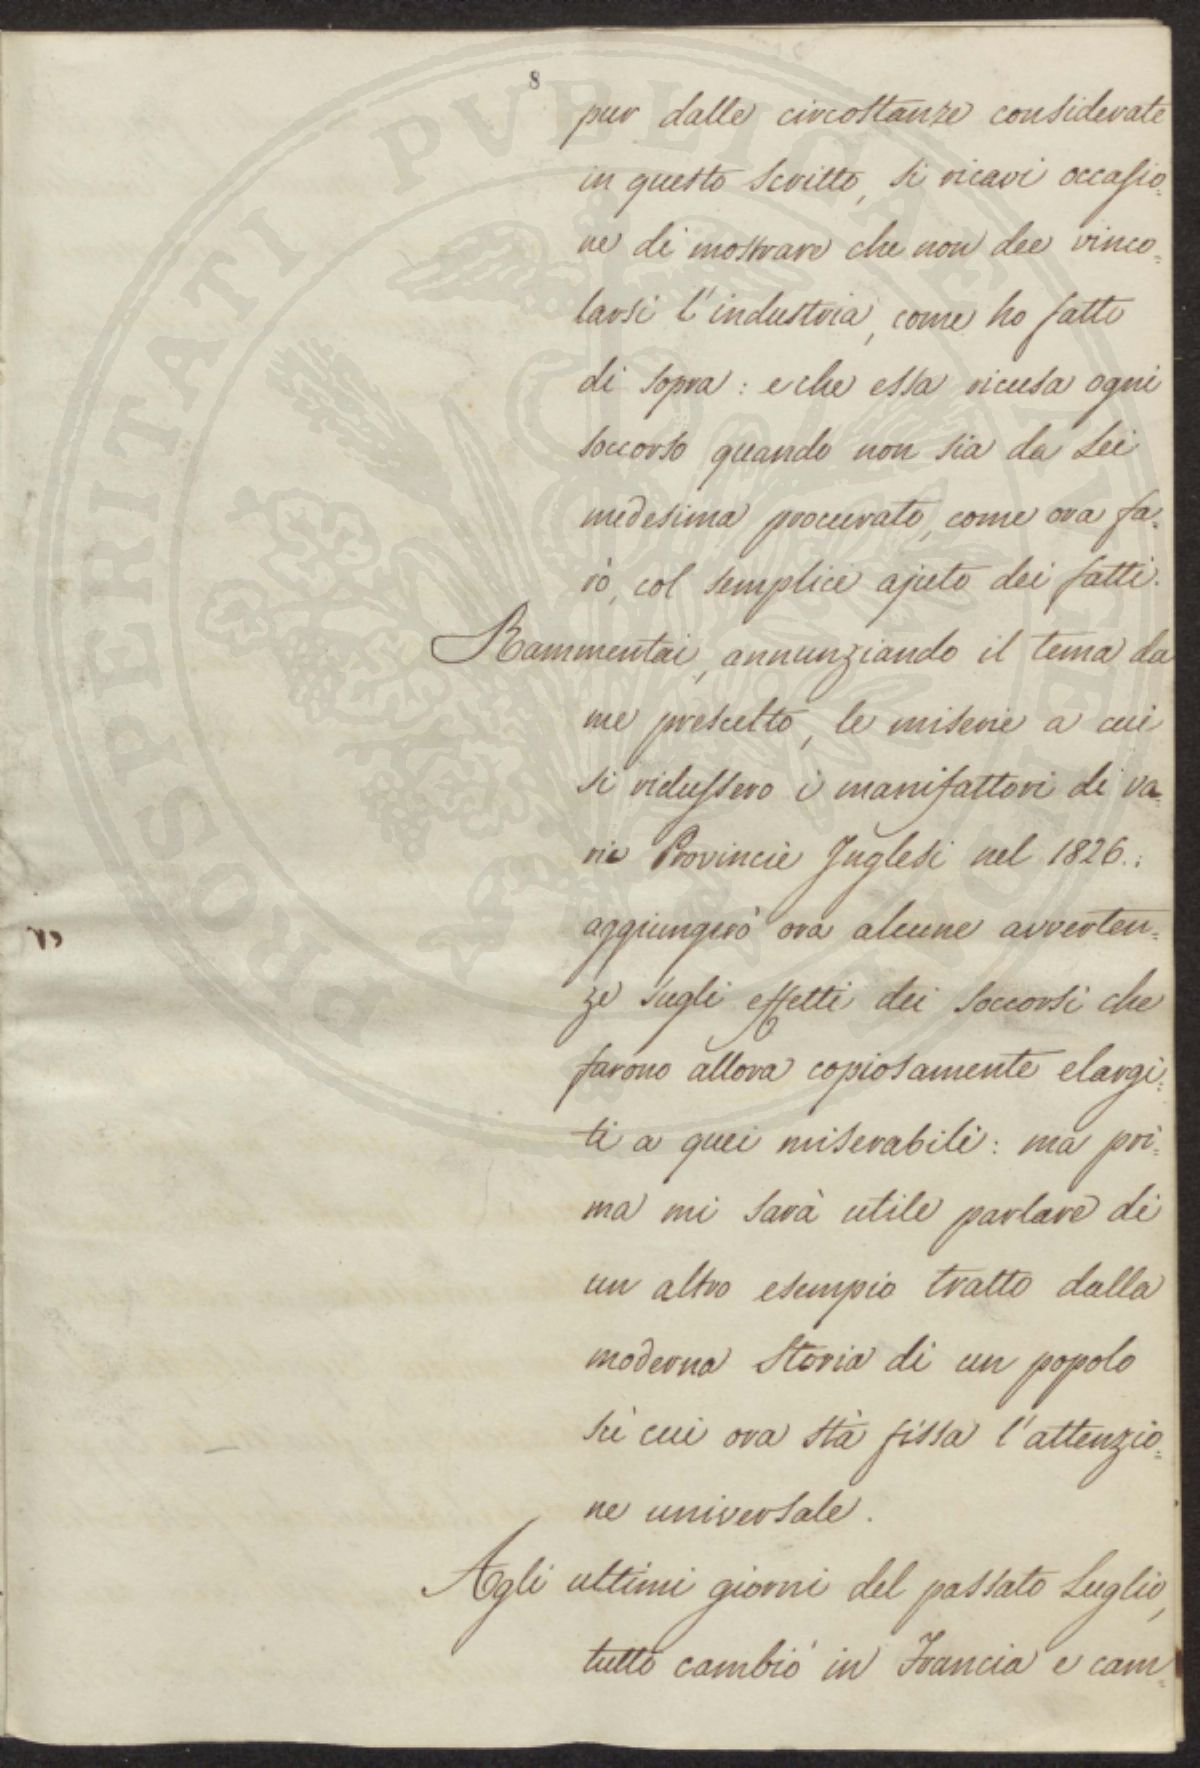 8
pur dalle circostanze considerate
in questo scritto, si ricavi occasio=
ne di mostrare che non dee vinco=
larsi l'industria, come ho fatto
di sopra: e che essa ricusa ogni
soccorso quando non sia da Lei
medesima procurato, come ora fa=
rò, col semplice ajuto dei fatti.
Rammentai, annunziando il tema da
me prescelto, le miserie a cui
si ridussero i manifattori di va=
rie Provincie Inglesi nel 1826.:
aggiungerò ora alcune avverten=
ze sugli effetti dei soccorsi che
farono allora copiosamente elargi=
ti a quei miserabili: ma pri=
ma mi sarà utile parlare di
un altro esempio tratto dalla
moderna Storia di un popolo
sù cui ora stà fissa l'attenzio=
ne universale.
Agli ultimi giorni del passato Luglio,
tutto cambiò in Francia e cam=
PROSPERITATI PVBLICAE AVGENDAE